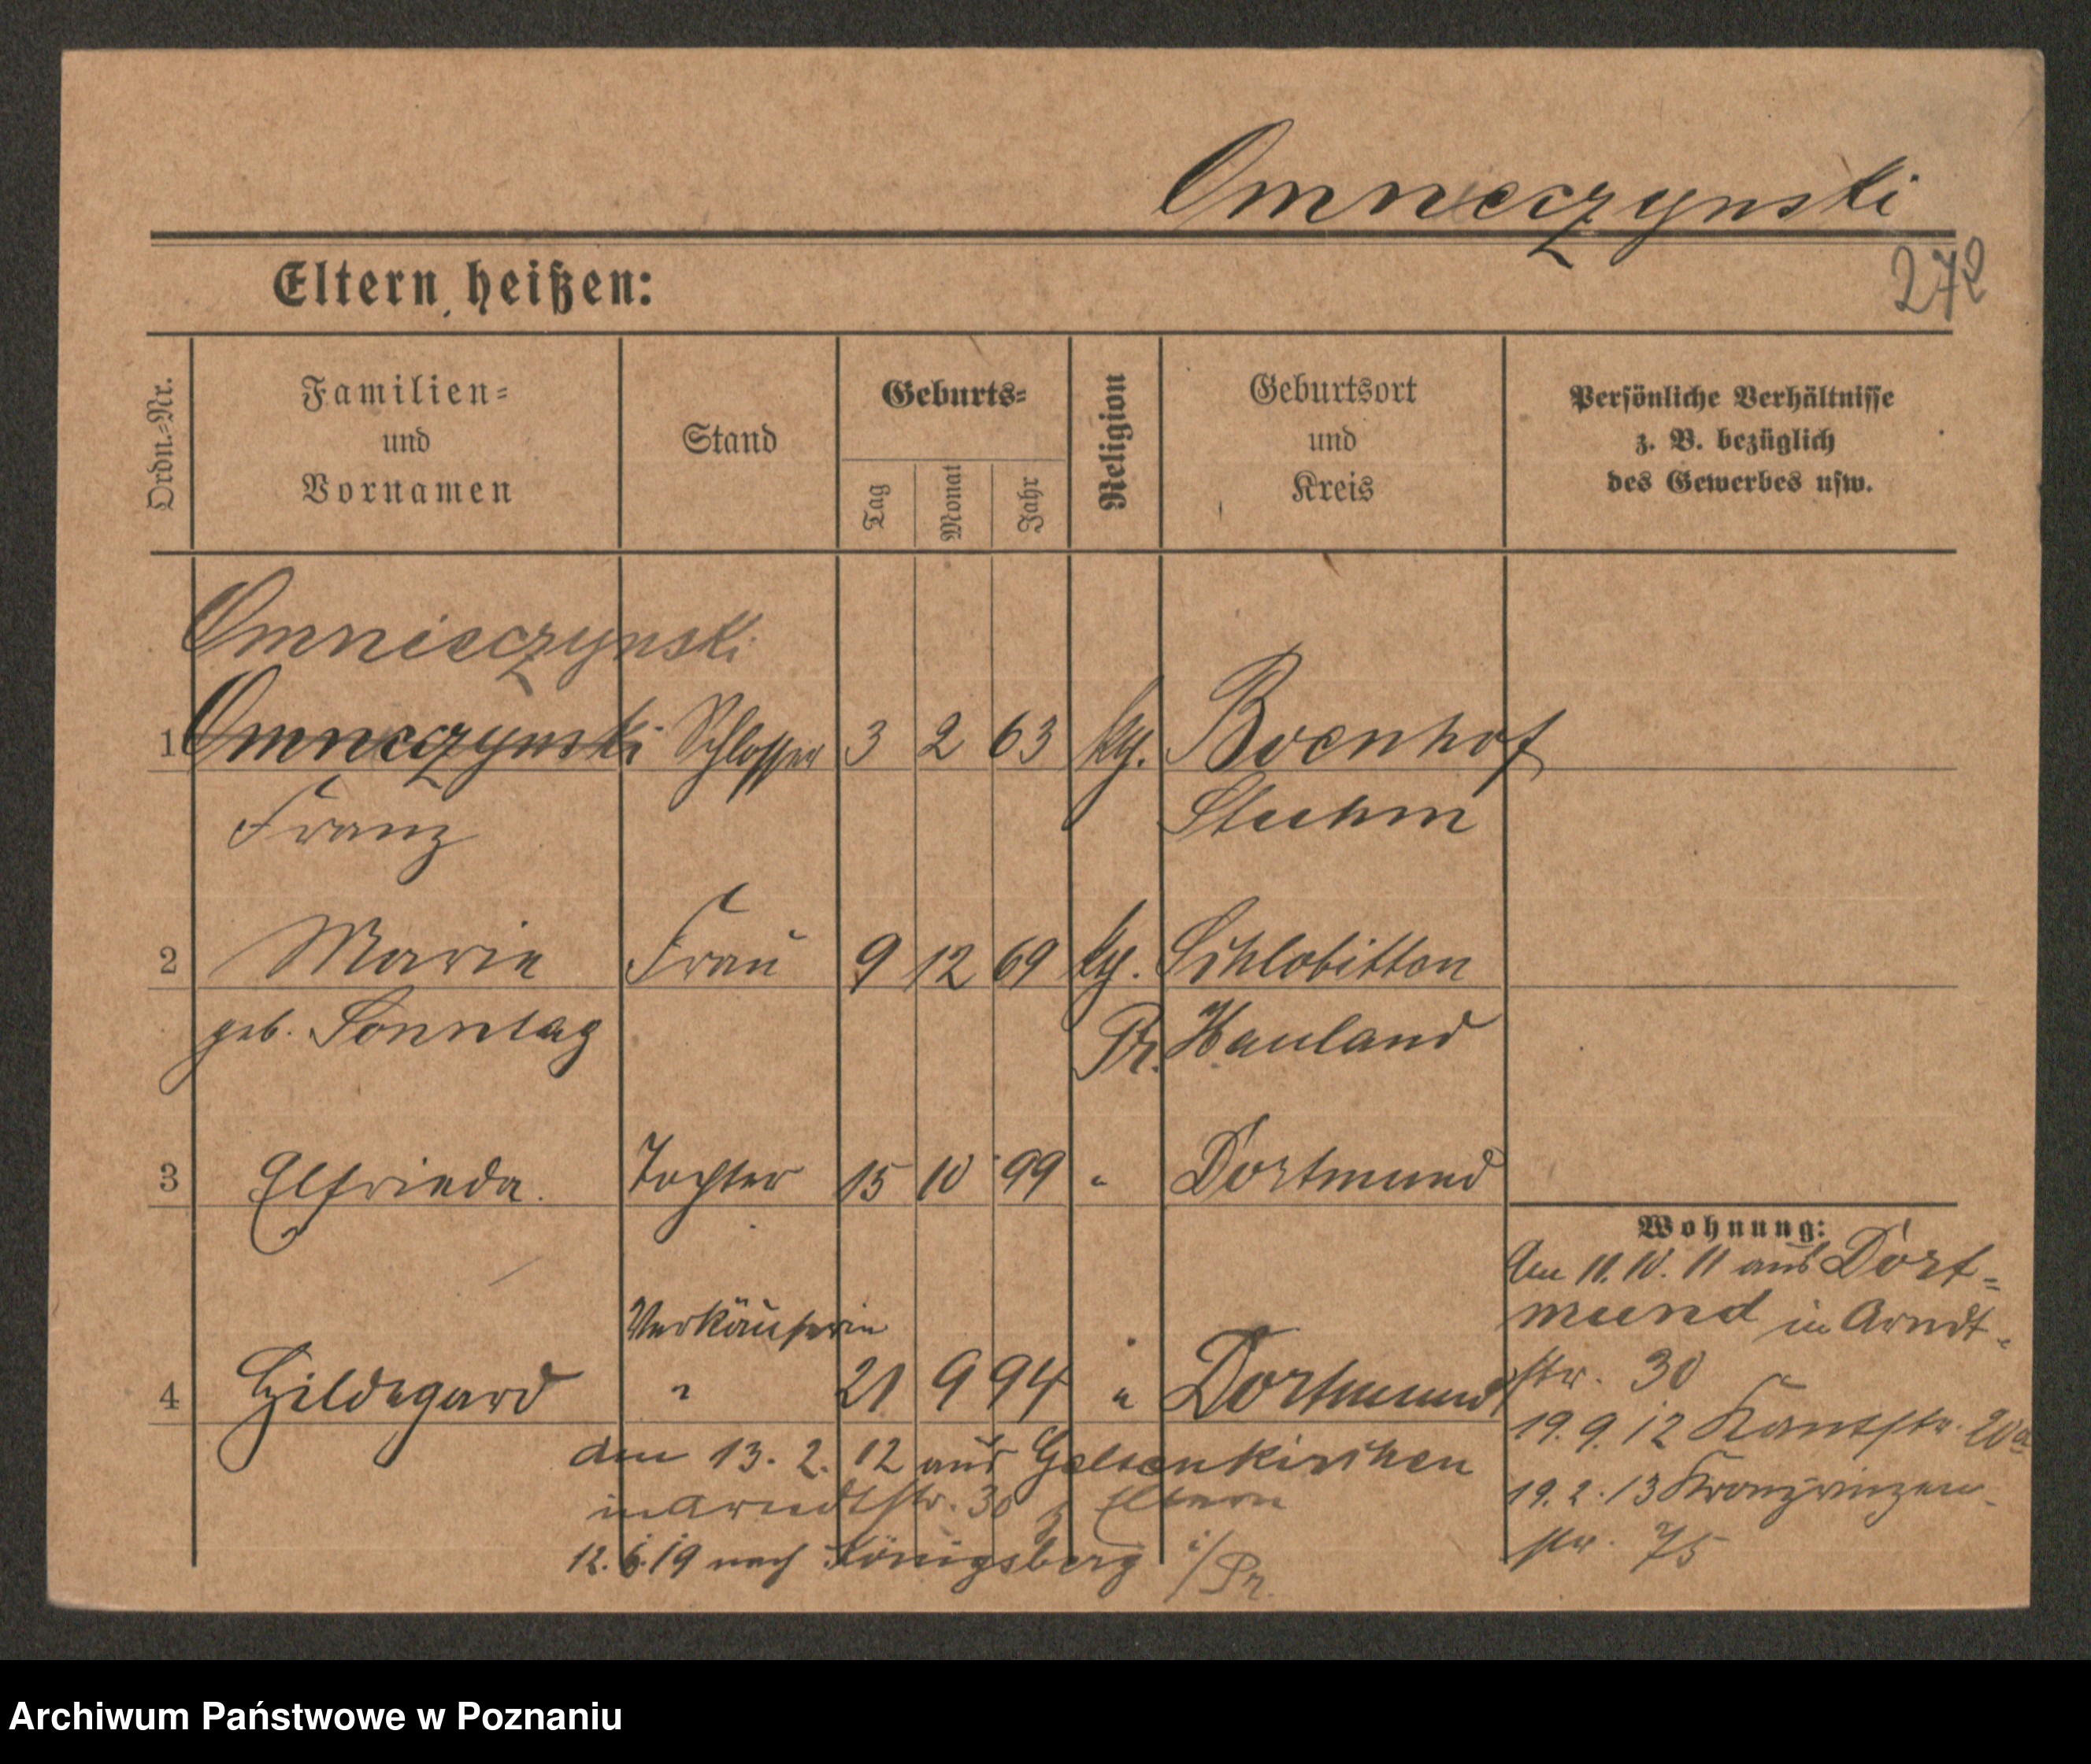 Omneczynski
272
Eltern heißen:
Ordn.-Nr.
Familien-
und
Vornamen
Stand
Geburts-
Tag
Monat
Jahr
Religion
Geburtsort
und
Kreis
Persönliche Verhältnisse
z. B. bezüglich
des Gewerbes usw.
Omnieczynski
1 Omneczynski Schlosser 3 2 63 kg. Boenhof
Franz Stuhm
2 Marie Frau 9 12 69 kg. Schlobitten
geb. Sonntag Pr. Hauland
3 Elfrieda. Tochter 15 10 99 " Dortmund
Wohnung:
Am 11. 10. 11 aus Dort-
mund in Arndt-
str. 30
19. 9. 12 Kantstr. 20a
19. 2. 13 Kronprinzen-
str. 75
Verkäuferin
4 Hildegard " 21 9 94 " Dortmund
den 13. 2. 12 aus Gelsenkirchen
in Arndtstr. 30 z. Eltern
12. 6. 19 nach Königsberg i/Pr.
Archiwum Państwowe w Poznaniu